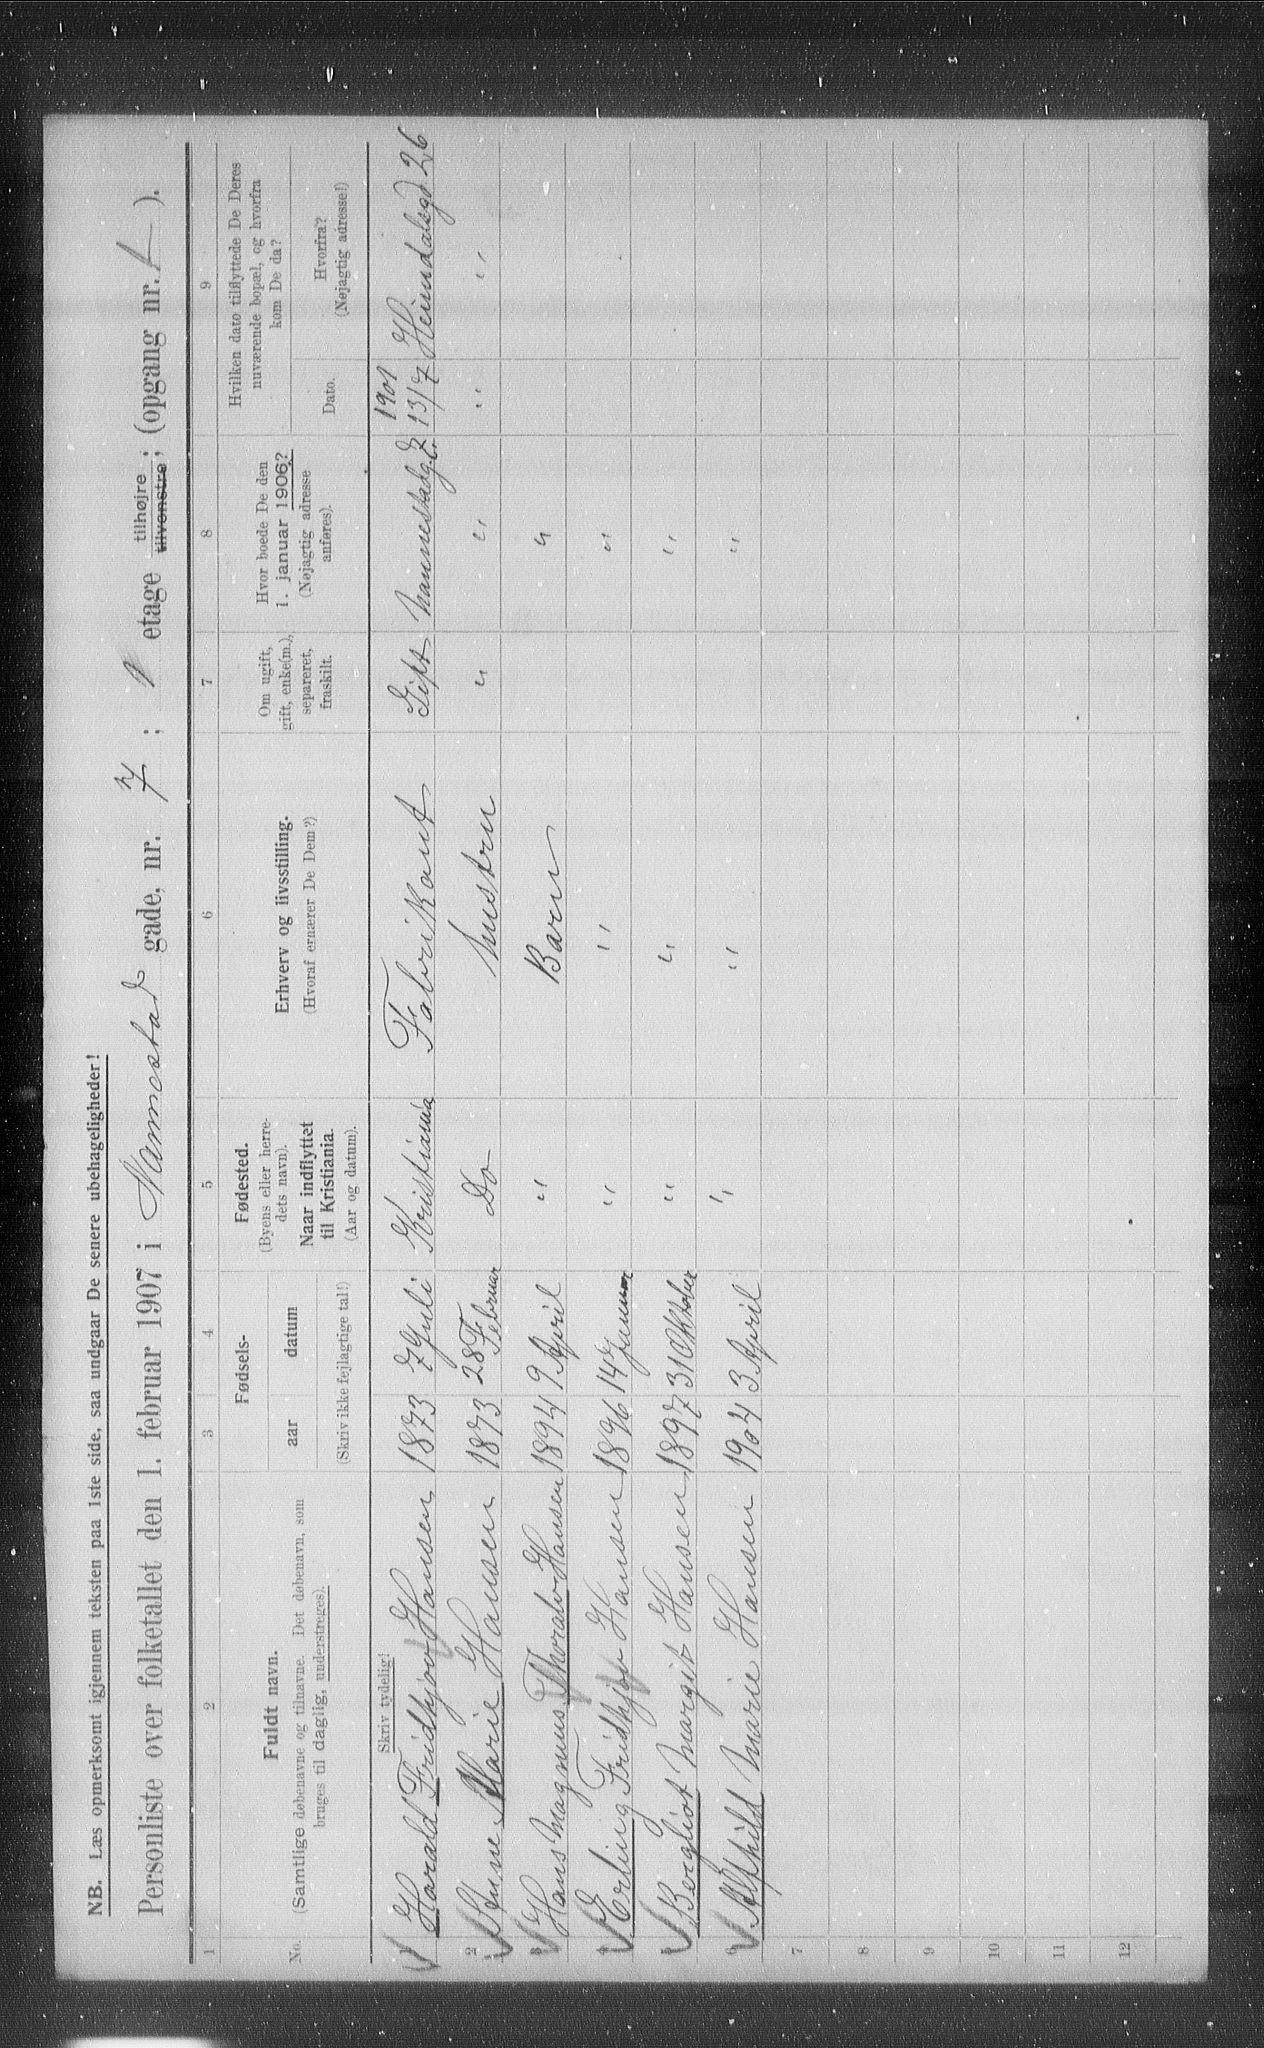 NB. Læs opmerksomt igjennem teksten paa 1ste side, saa undgaar De senere ubehageligheder!
Personliste over folketallet den 1. februar 1907 i Mannestad gade, nr. 7; 1 etage tilhøjre tilvenstre; (opgang nr. ).
1 2 3 4 5 6 7 8 9
No.
Fuldt navn.
(Samtlige døbenavne og tilnavne. Det døbenavn, som
bruges til daglig, understreges).
Fødsels-
aar datum
(Skriv ikke fejlagtige tal!)
Fødested.
(Byens eller herre-
dets navn).
Naar indflyttet
til Kristiania.
(Aar og datum).
Erhverv og livsstilling.
(Hvoraf ernærer De Dem?)
Om ugift,
gift, enke(m.),
separeret,
fraskilt.
Hvor boede De den
1. januar 1906?
(Nøjagtig adresse
anføres).
Hvilken dato tilflyttede De Deres
nuværende bopæl, og hvorfra
kom De da?
Dato.
Hvorfra?
(Nøjagtig adresse!)
Skriv tydelig!
1 Harald Fridhjov Hansen 1873 7 Juli Kristiania Fabrikant Gift Mannestadg. 7 1901 13/7 Heimdalsgd 26
2 Anne Marie Hansen 1873 28 Februar Do hustru " " " "
3 Hans Magnus Thoralv Hansen 1894 9 April " Barn "
4 Erling Fridhjov Hansen 1896 14 Januar " " "
5 Bergliot Margit Hansen 1897 31 Oktober " " "
6 Alfhild Marie Hansen 1904 3 April " " "
7
8
9
10
11
12